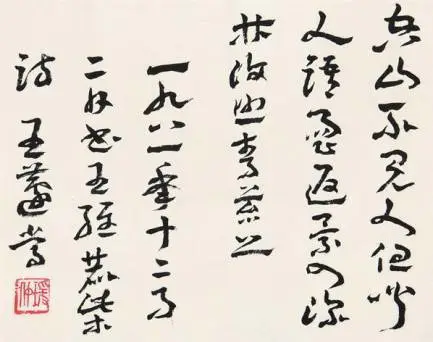 空山不見人但聞
人語響返景入深
林復照青苔上
一九八一年十二月
二日書王維鹿柴
詩 王蘧常
瑗仲